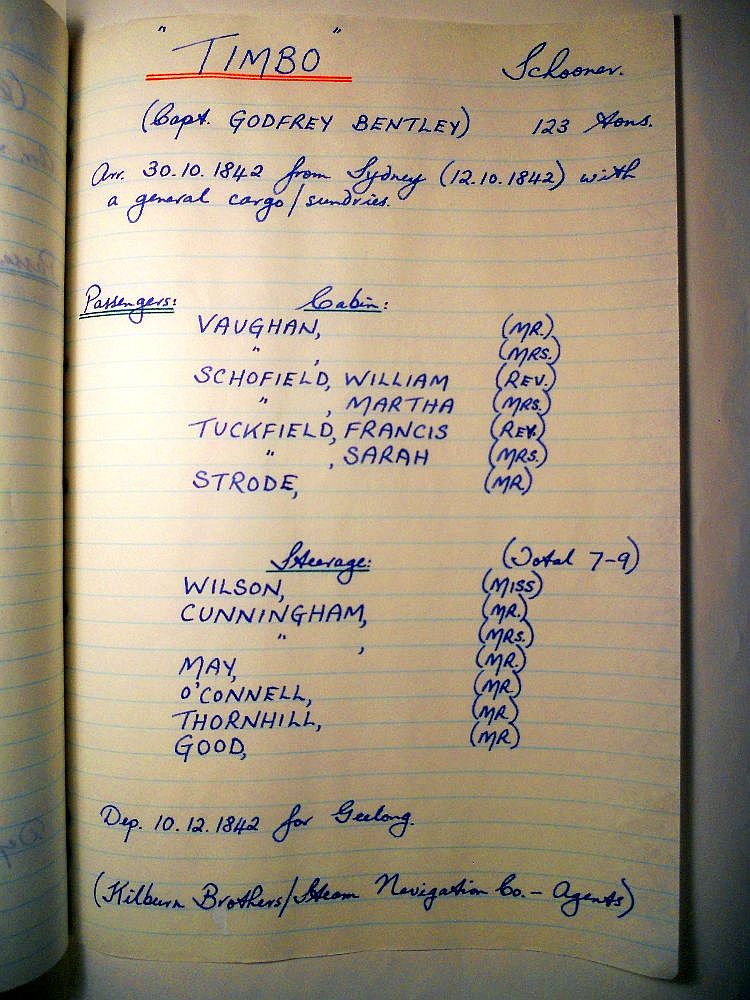 "TIMBO" Schooner.
(Capt. GODFREY BENTLEY) 123 tons.
Arr. 30.10.1842 from Sydney (12.10.1842) with
a general cargo/sundries.
Passengers: Cabin:
VAUGHAN, (MR.)
" , (MRS.)
SCHOFIELD, WILLIAM (REV.)
" , MARTHA (MRS.)
TUCKFIELD, FRANCIS (REV.)
" , SARAH (MRS.)
STRODE, (MR.)
Steerage: (Total 7-9)
WILSON, (MISS)
CUNNINGHAM, (MR.)
" , (MRS.)
MAY, (MR.)
O'CONNELL, (MR.)
THORNHILL, (MR)
GOOD, (MR)
Dep. 10.12.1842 for Geelong.
(Kilburn Brothers/Steam Navigation Co. – Agents)